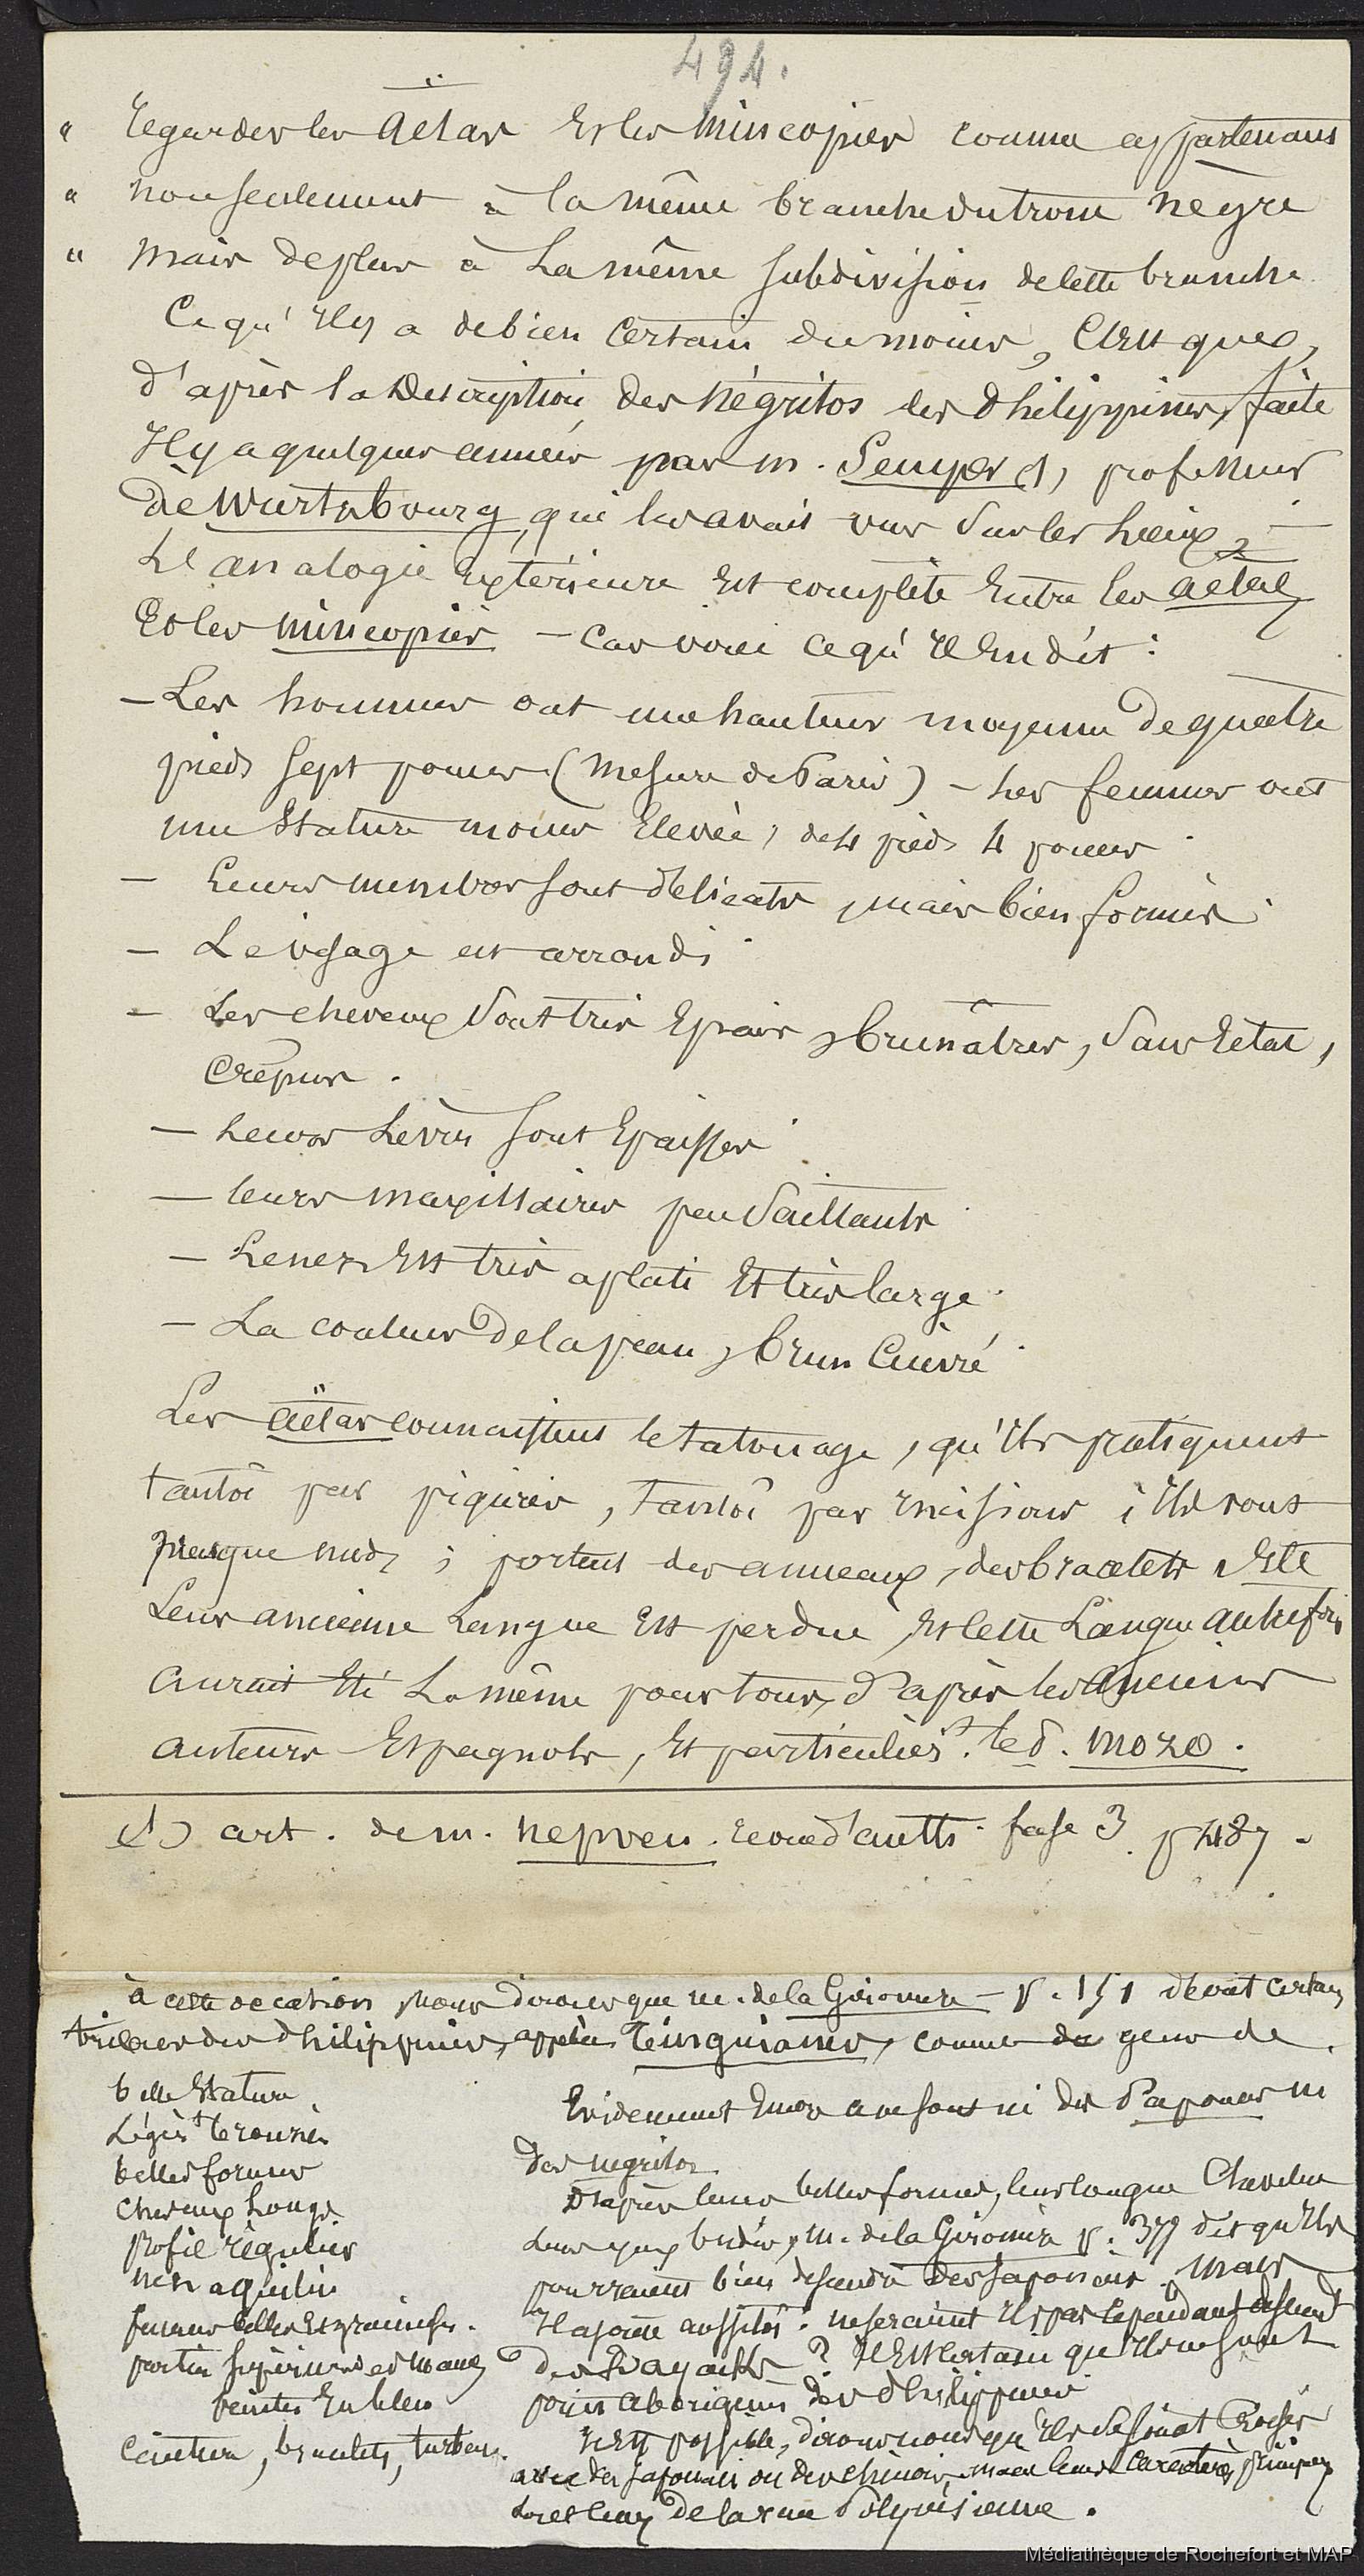 494.
" regarder les Aëtas et les mincopies comme appartenans
" non seulement à la même branche du tronc nègre
" mais de plus à la même subdivision de cette branche.
Ce qu'il y a de bien certain du moins, c'est que,
d'après la description des négritos des Philippines, faite
Il y a quelques années par m. Semper (1) professeur
de Wurtzbourg, qui les avait vus sur les lieux, –
L'analogie extérieure est complète entre les aëtas
et les mincopies – car voici ce qu'il en dit :
– Les hommes ont une hauteur moyenne de quatre
pieds sept pouces (mesure de Paris) – les femmes ont
une stature moins élevée, de 4 pieds 4 pouces.
– Leurs membres sont délicats, mais bien formés.
– Le visage est arrondi
– Les cheveux sont très épais, brunâtres, sans éclat,
crépus.
– Leurs lèvres sont épaisses
– leurs maxillaires peu saillants
– Le nez est très aplati et très large.
– La couleur de la peau, brun cuivré.
Les aëtas connaissent le tatouage, qu'ils pratiquent
tantôt par piqûres, tantôt par incisions ; ils vont
presque nuds ; portent des anneaux, des bracelets etc
Leur ancienne Langue est perdue, et cette Langue autrefois
aurait été la même pour tous, d'après les anciens
auteurs Espagnols, et particulièrt. le d. mozo.
(1) art. de m. nepveu. revue d'anth. fasc 3. p 487.
à cette occasion nous dirons que m. de la Gironière – p. 151 décrit certaines
tribus des Philippines, appelées Tinguianes, comme des gens de
belle stature
Légèrt bronzés
belles formes
cheveux longs
profil régulier
nez aquilin
femmes belles et gracieuses.
partie supérieure des mains
peintes en bleu
ceinture, bracelets, turbans.
Evidemment ce ne sont ni des Papouas ni
des negritos
D'après leurs belles formes, leur longue chevelure
Leurs yeux bridés, m. de la Gironière p. 377 dit qu'ils
pourraient bien descendre des Japonais. Mais
Il ajoute aussitôt : ne seraient ils pas cependant descend
des Dayaks ? Il est certain qu'ils ne sont
point aborigènes des Philippines
Il est possible, dirons nous qu'ils se soient croisés
avec des Japonais ou des chinois, mais leurs caractères principaux
sont ceux de la race Polynésienne.
Médiathèque de Rochefort et MAP